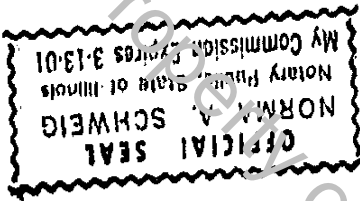 OFFICIAL SEAL
NORMA A. SCHWEIG
Notary Public, State of Illinois
My Commission Expires 3-13-01